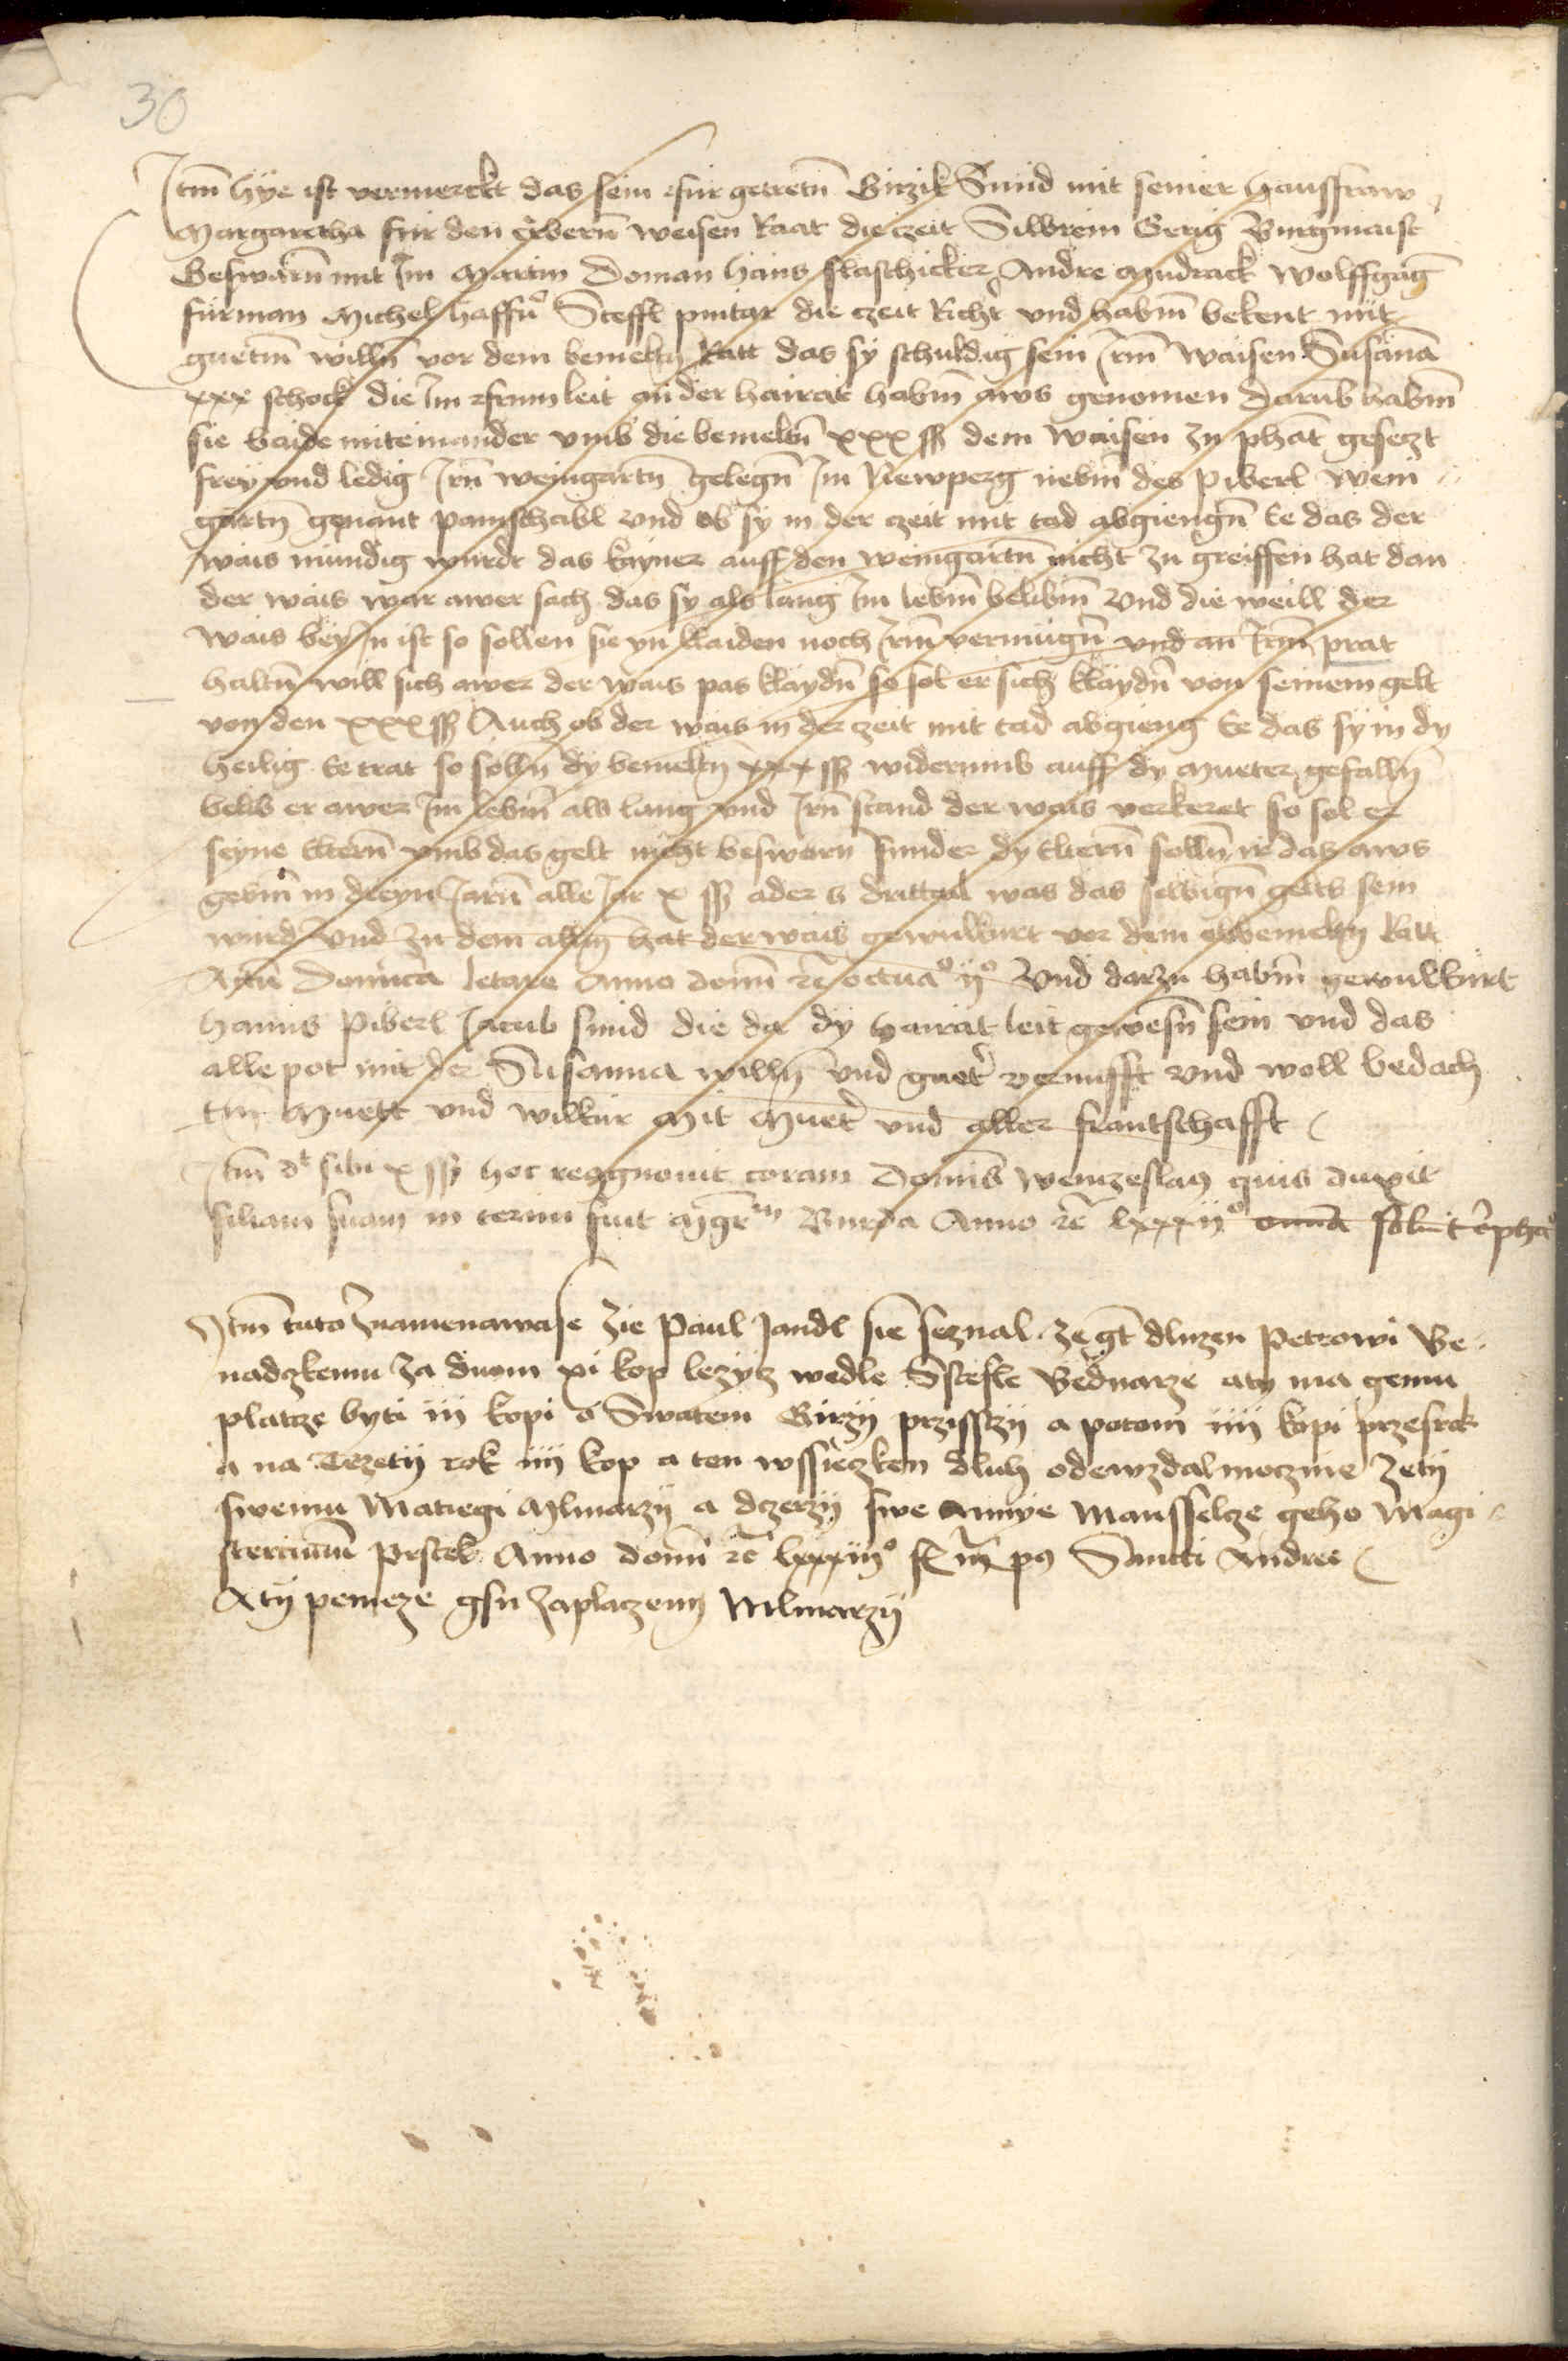 30
Itm̄ hÿe ist vermerckt das sein fur getretn̄ Girzik Smid mit seiner haussfraw
Margaretha fur den erbern̄ weisen Raat die czeit Silbrein Gerig Burgmaist
Geswarn̄ mit Im Martin Doman hans flaschicker Andre Mudrack Wolffgāg
furman Michel haffn̄ Steffl pintar die czeit Richt̄ vnd habm̄ bekent mit
guetm̄ willn̄ vor dem bemeltn̄ Ratt das sy schuldig sein Irm̄ waisen Susanā
xxx schock die Im frumleit an der hairat habm̄ aws genomen Darub̄ habm̄
sie baide miteinander vmb die bemeltn̄ xxx ss dem waisen zu phāt geseczt
frey vnd ledig Irn̄ weingartn̄ gelegn̄ Im Newperg nebm̄ des Piberl wein
gartn̄ genant pamschabl vnd ob sy in der czeit mit tad abgiengn̄ Ee das der
wais mundig wurdt das kayner auff den weingartn̄ nicht zu greiffen hat dan
der wais war awer sach das sy als lang Im lebm̄ belibm̄ Vnd die weill der
wais bey In ist so sollen sie yn klaiden noch Irm̄ vermugn̄ vnd an Irm̄ prat
haltn̄ will sich awer der wais pas klaydn̄ so sol er sich klaydn̄ von seinem gelt
von den xxx ss Auch ob der wais in der zeit mit tad abgieng Ee das sy in dy
heilig Ee trat so solln̄ dy bemeltn̄ xxx ss widerumb auff dy Mueter gefalln̄
beleib er awer Im lebm̄ als lang vnd Irn̄ stand der wais verkeret so sol er
seyne Eltern̄ vmb das gelt nicht beswern̄ sunder dy Eltern̄ solln̄ ir das aws
gebm̄ in dreyn Jarn̄ alle Jar x ss ader dritteil was das selbign̄ gelts sein
wurd vnd zu dem alln̄ hat der wais gewulkurt vor dem obbemeltn̄ Ratt
Actū Dominica letare Anno domī rc̄ octuaº ijº Vnd darzu habm̄ gewulkurt
hanns Piberl Jacub smid die da dy hairat leit gewesn̄ sein vnd das
alle pot mit der Susanna willn̄ vnd guet̄ vernufft vnd woll bedach
tm̄ Muett vnd wilkur Mit Muet̄ vnd aller frantschafft
Itm̄ dt sibi x ss hoc recognouit coram Dominis wenczeslaus quis duxit
filiam suam in termī fuit mḡr̄ Burda Anno rc̄ lxxxijº omnā soluit
Itm̄ tuto Znamenawa se Zie Paul Jandl sie seznal ze gt dluzen Petrowi Be
nadczkemu za duom xi kop lezycz wedle Sstefle Bednarze aty ma gemu
platcze byti iij kopi o Swatem Girzij przisstij a potom iiij kopi przesrok
a na Trzetij rok iiij kop a ten wssieczken dluh odewzdal moczne Zetij
swemu Matiegi Mlinarzij a dczerzij swe Annye Mansselcze geho Magi
sterciuium Prstek Anno domī rc̄ lxxxiijº f iij ps Sancti Andree
A tij penieze gsu zaplaczeny Mlinarzij